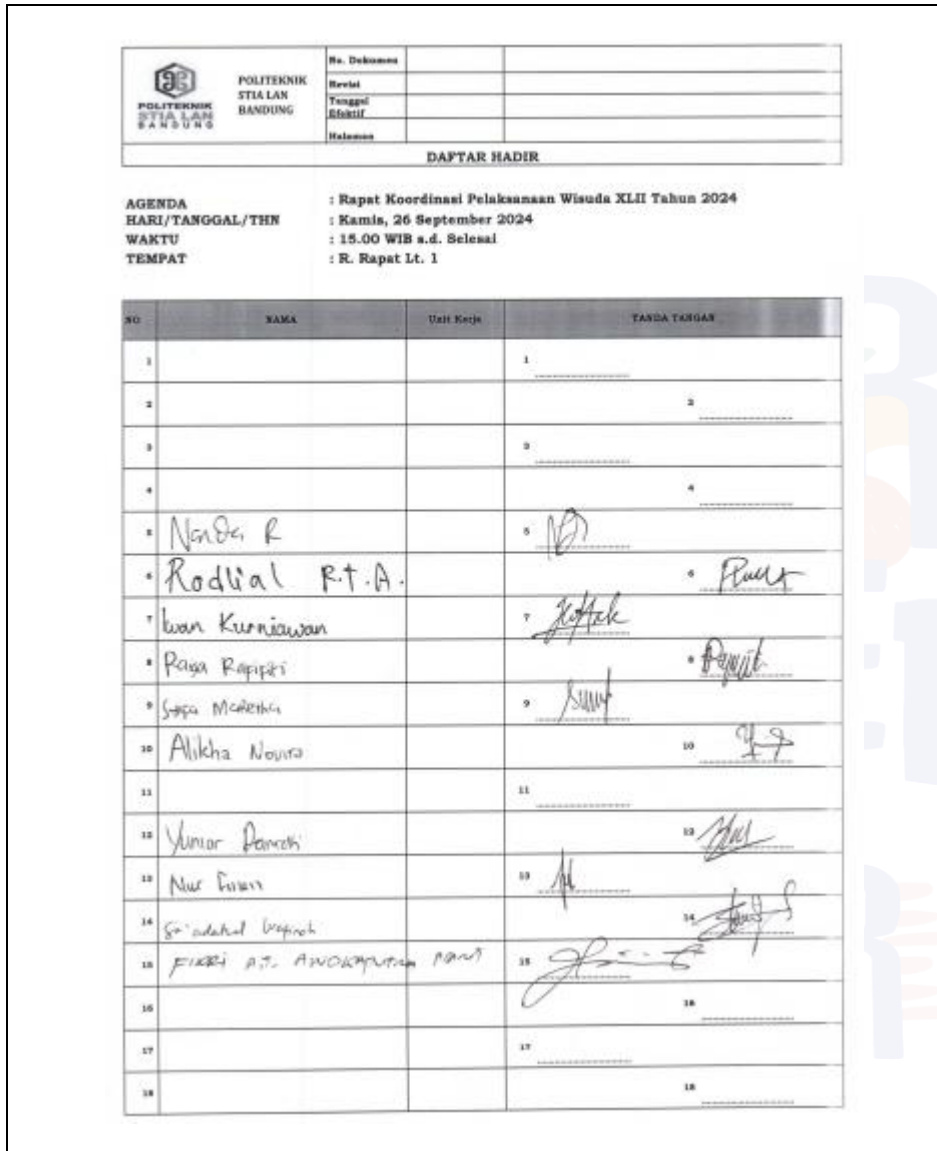 POLITEKNIK
STIA LAN
BANDUNG
POLITEKNIK
STIA LAN
BANDUNG
No. Dokumen
Revisi
Tanggal
Efektif
Halaman
DAFTAR HADIR
AGENDA : Rapat Koordinasi Pelaksanaan Wisuda XLII Tahun 2024
HARI/TANGGAL/THN : Kamis, 26 September 2024
WAKTU : 15.00 WIB s.d. Selesai
TEMPAT : R. Rapat Lt. 1
NO NAMA Unit Kerja TANDA TANGAN
1 1
2 2
3 3
4 4
5 Nanda R 5
6 Rodlial R.T.A. 6
7 Iwan Kurniawan 7
8 8
9 9
10 Alikha Novira 10
11 11
12 Yuniar 12
13 Nur 13
14 14
15 FIKRI A.J. 15
16 16
17 17
18 18